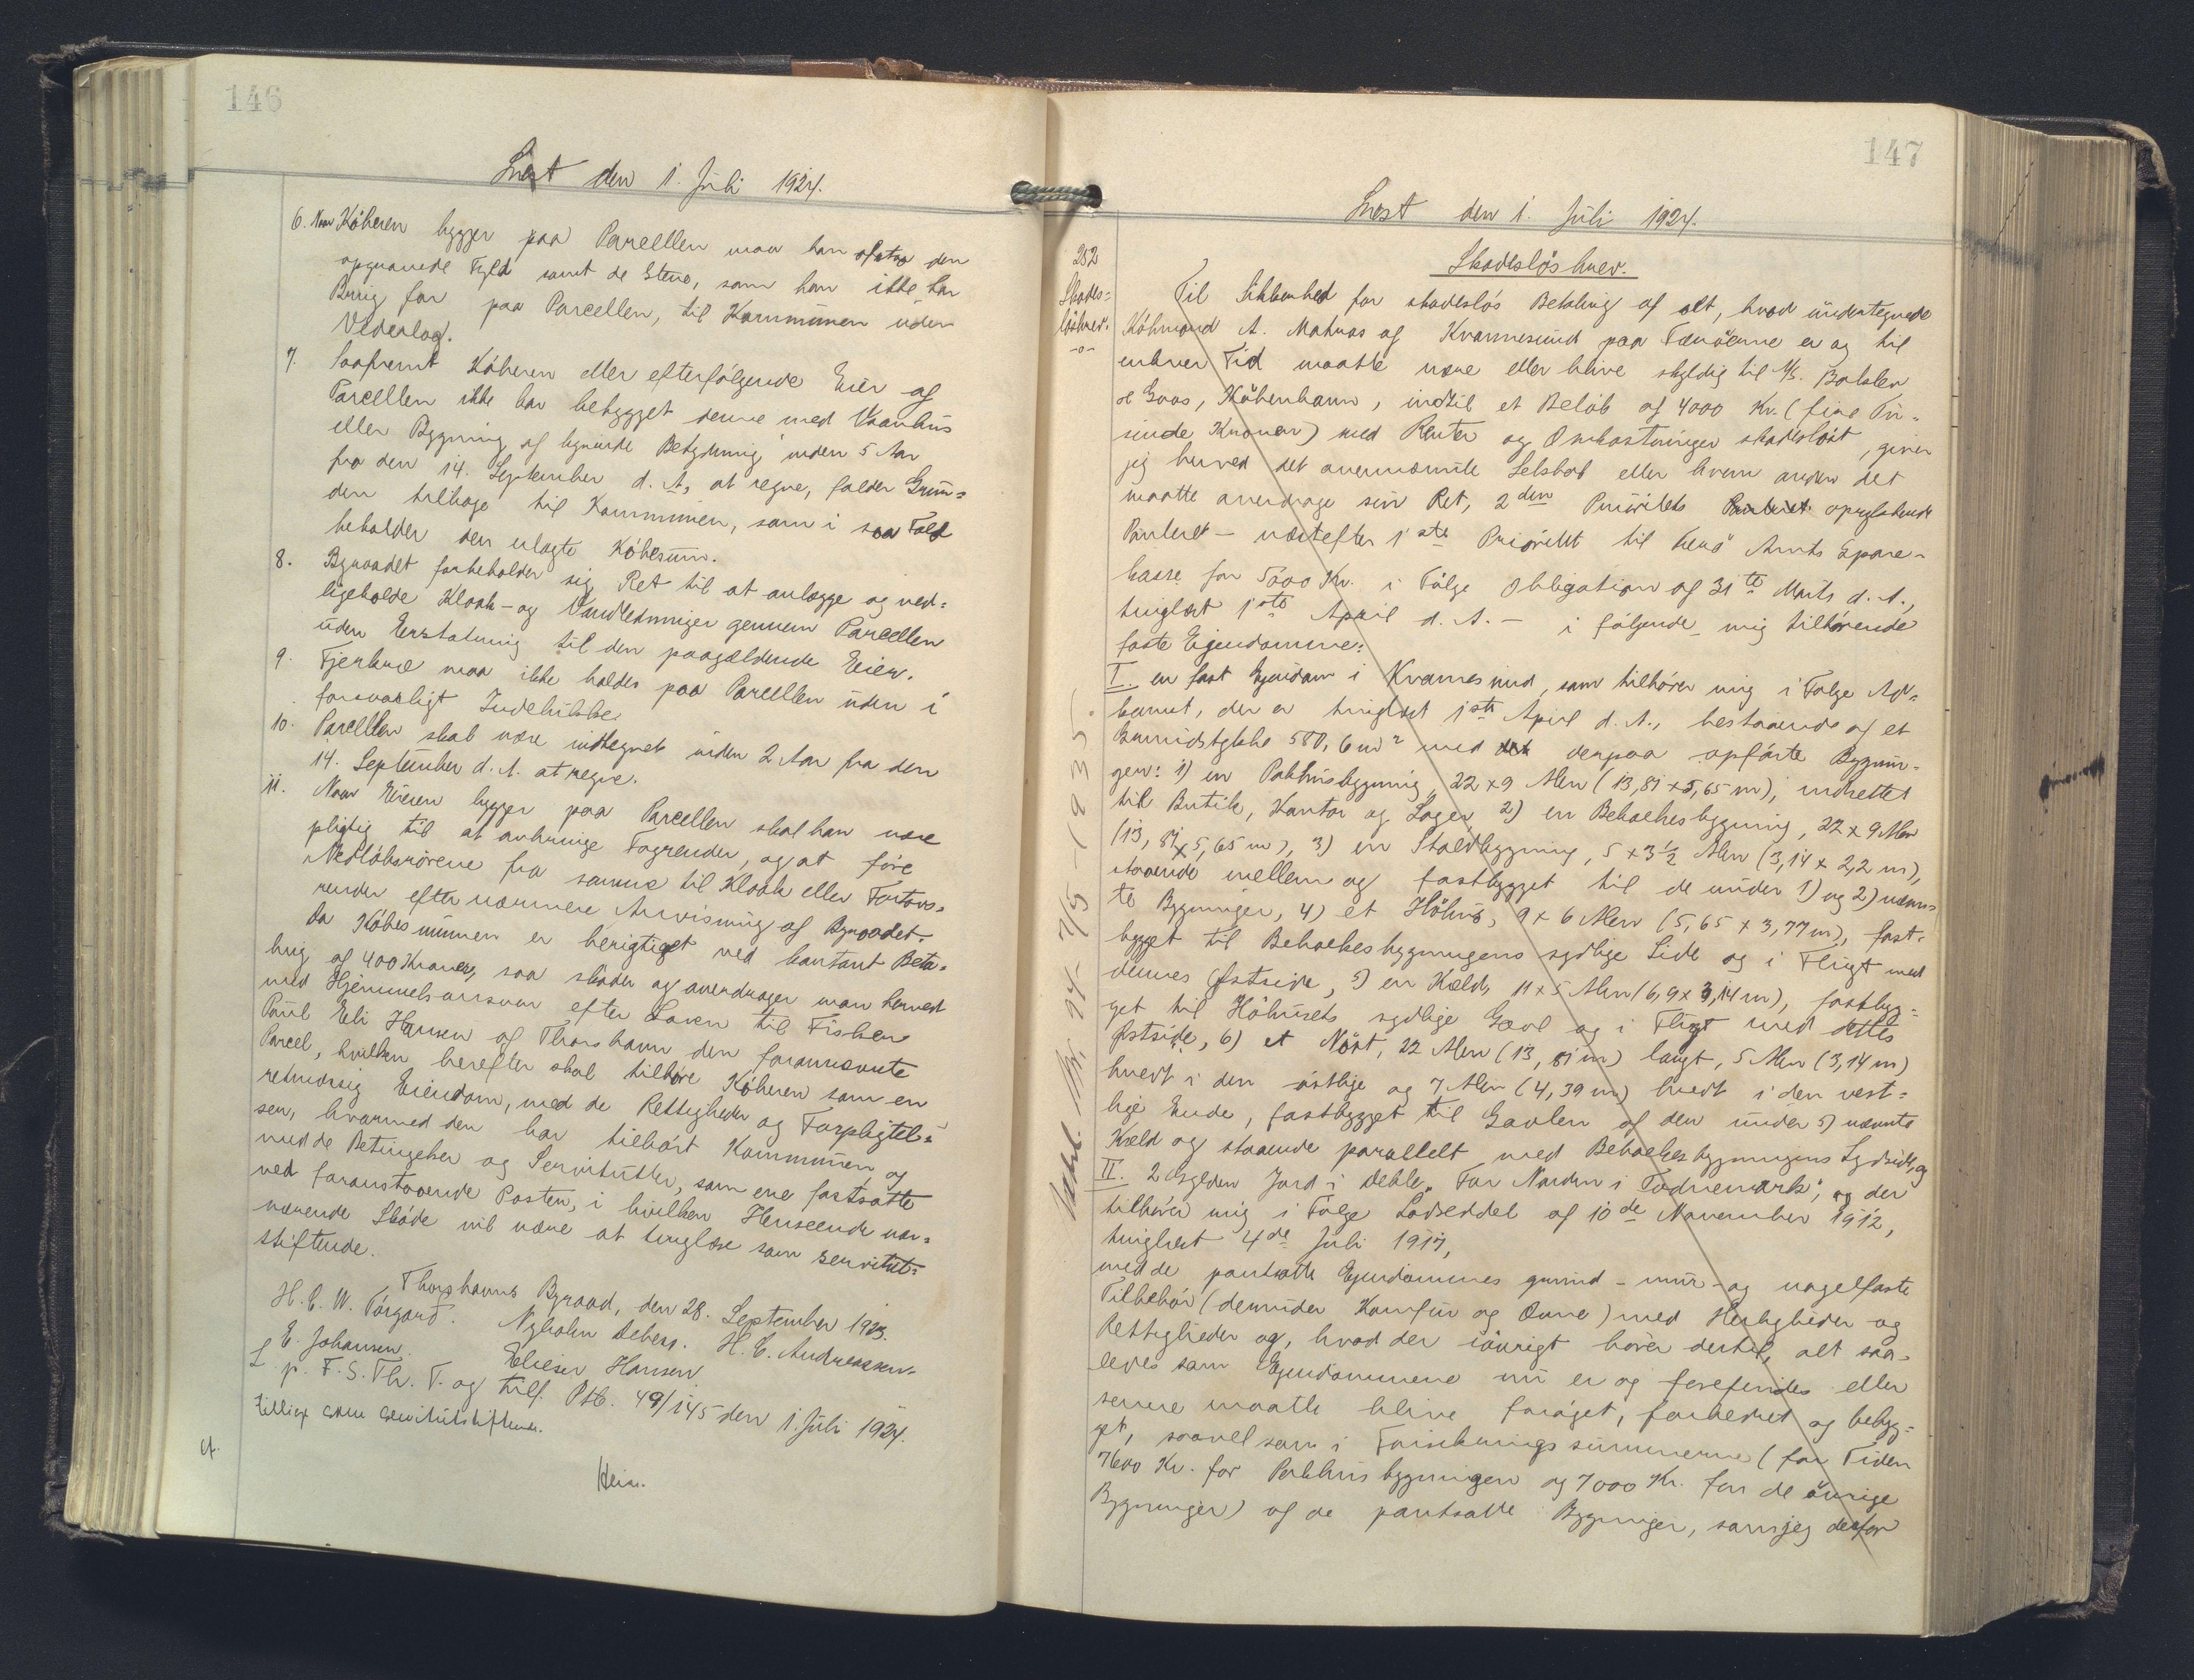 146
Læst den 1. Juli 1924.
6. Naar Köberen bygger paa Parcellen maa han afstaa den
opgravede Fyld samt de Stene, som han ikke har
Brug for paa Parcellen, til Kommunen uden
Vederlag.
7. Saafremt Köberen eller efterfölgende Eier af
Parcellen ikke har bebygget denne med Vaanhus
eller Bygning af lignende Betydning inden 5 Aar
fra den 14. September d. A. at regne, falder Grun=
den tilbage til Kommunen, som i saa Fald
beholder den erlagte Köbesum.
8. Byraadet forbeholder sig Ret til at anlægge og ved=
ligeholde Kloak- og Vandledninger gennem Parcellen
uden Erstatning til den paagældende Eier.
9. Fjerkræ maa ikke holdes paa Parcellen uden i
forsvarligt Indelukke.
10. Parcellen skal være indhegnet inden 2 Aar fra den
14. September d. A. at regne.
11. Naar Eieren bygger paa Parcellen skal han være
pligtig til at anbringe Tagrender, og at före
Nedlöbsrörene fra samme til Kloak eller Fortovs=
render efter nærmere Anvisning af Byraadet.
Da Köbesummen er berigtiget ved kontant Beta=
ling af 400 Kroner, saa sköder og overdrager man herved
med Hjemmelsansvar efter Loven til Fisker
Poul Eli Hansen af Thorshavn den forannævnte
Parcel, hvilken herefter skal tilhöre Köberen som en
retmæssig Eiendom, med de Rettigheder og Forpligtel=
ser, hvormed den har tilhört Kommunen og
med de Betingelser og Servitutter, som ere fastsatte
ved foranstaaende Poster, i hvilken Henseende nær=
værende Sköde vil være at tinglæse som servitut=
stiftende.
Thorshavns Byraad, den 28. September 1923.
H. C. W. Tórgarð. Nyholm Debess. H. C. Andreassen.
E. Johansen. Elieser Hansen.
L. p. F. S. Th. T. og tilf. Ptb. 49/145 den 1. Juli 1924.
tillige som servitutstiftende.
cf.
Hein.
147
Læst den 1. Juli 1924.
252
Skades=
lösbrev.
-o-
Skadeslösbrev.
Til Sikkerhed for skadeslös Betaling af alt, hvad undertegnede
Köbmand A. Matras af Kvannesund paa Færöerne er og til
enhver Tid maatte være eller blive skyldig til A/S. Balslev
& Goos, Köbenhavn, indtil et Belöb af 4000 Kr. (fire Tu=
sinde Kroner) med Renter og Omkostninger skadeslöst, giver
jeg herved det ovennævnte Selskab eller hvem anden det
maatte overdrage sin Ret, 2den Prioritets oprykkende
Panteret - næstefter 1ste Prioritet til Færö Amts Spare=
kasse for 5000 Kr. i Fölge Obligation af 31te Marts d. A.,
tinglæst 1ste April d. A. - i fölgende mig tilhörende
faste Ejendomme:
I. en fast Ejendom i Kvannesund, som tilhörer mig i Fölge Ad=
komst, der er tinglæst 1ste April d. A., bestaaende af et
Grundstykke 580,6 m² med derpaa opförte Bygnin=
ger: 1) en Pakhusbygning 22 x 9 Alen (13,81 x 5,65 m), indrettet
til Butik, Kontor og Lager 2) en Beboelsesbygning, 22 x 9 Alen
(13,81 x 5,65 m), 3) en Staldbygning, 5 x 3½ Alen (3,14 x 2,2 m),
staaende mellem og fastbygget til de under 1) og 2) nævn=
te Bygninger, 4) et Höhus, 9 x 6 Alen (5,65 x 3,77 m), fast=
bygget til Beboelsesbygningens sydlige Side og i Flugt med
dennes Østside, 5) en Kæld, 11 x 5 Alen (6,9 x 3,14 m), fastbyg=
get til Höhusets sydlige Gavl og i Flugt med dettes
Østside, 6) et Nöst, 22 Alen (13,81 m) langt, 5 Alen (3,14 m)
bredt i den östlige og 7 Alen (4,39 m) bredt i den vest=
lige Ende, fastbygget til Gavlen af den under 5) nævnte
Kæld og staaende parallelt med Beboelsesbygningens Sydside, og
II. 2 Gylden Jord i Deble "Fur Norden i Todnemark", og der
tilhörer mig i Fölge Lodseddel af 10de November 1912,
tinglæst 4de Juli 1917,
med de pantsatte Ejendommes grund- mur- og nagelfaste
Tilbehör (derunder Komfur og Ovne) med Herligheder og
Rettigheder og, hvad der iövrigt hörer dertil, alt saa=
ledes som Ejendommene nu er og forefindes eller
senere maatte blive foröget, forbedret og bebyg=
get, saavel som i Forsikringssummerne (for Tiden
7600 Kr. for Pakhusbygningen og 7000 Kr. for de övrige
Bygninger) af de pantsatte Bygninger, som jeg derfor
7/5 - 1935.